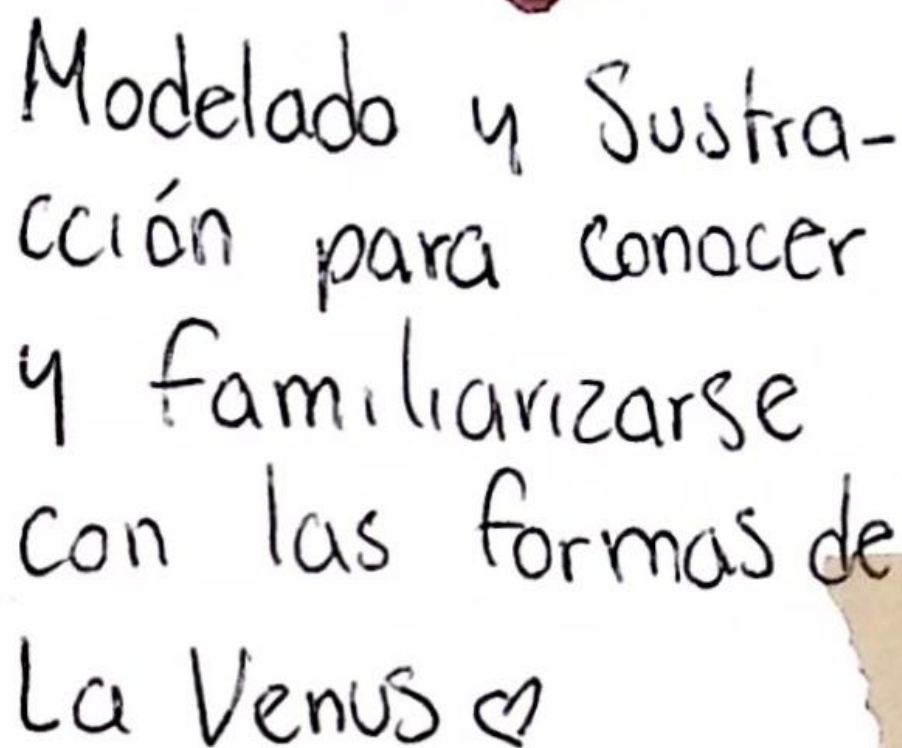 Modelado y Sustra-
cción para conocer
y familiarizarse
con las formas de
La Venus ♡